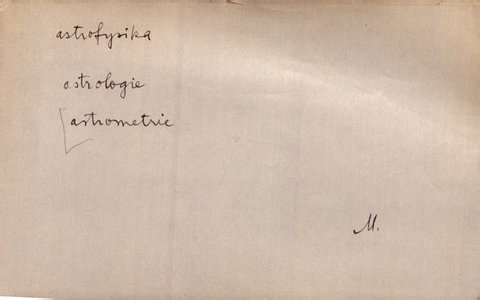 astrofysika
astrologie
astrometrie
M.